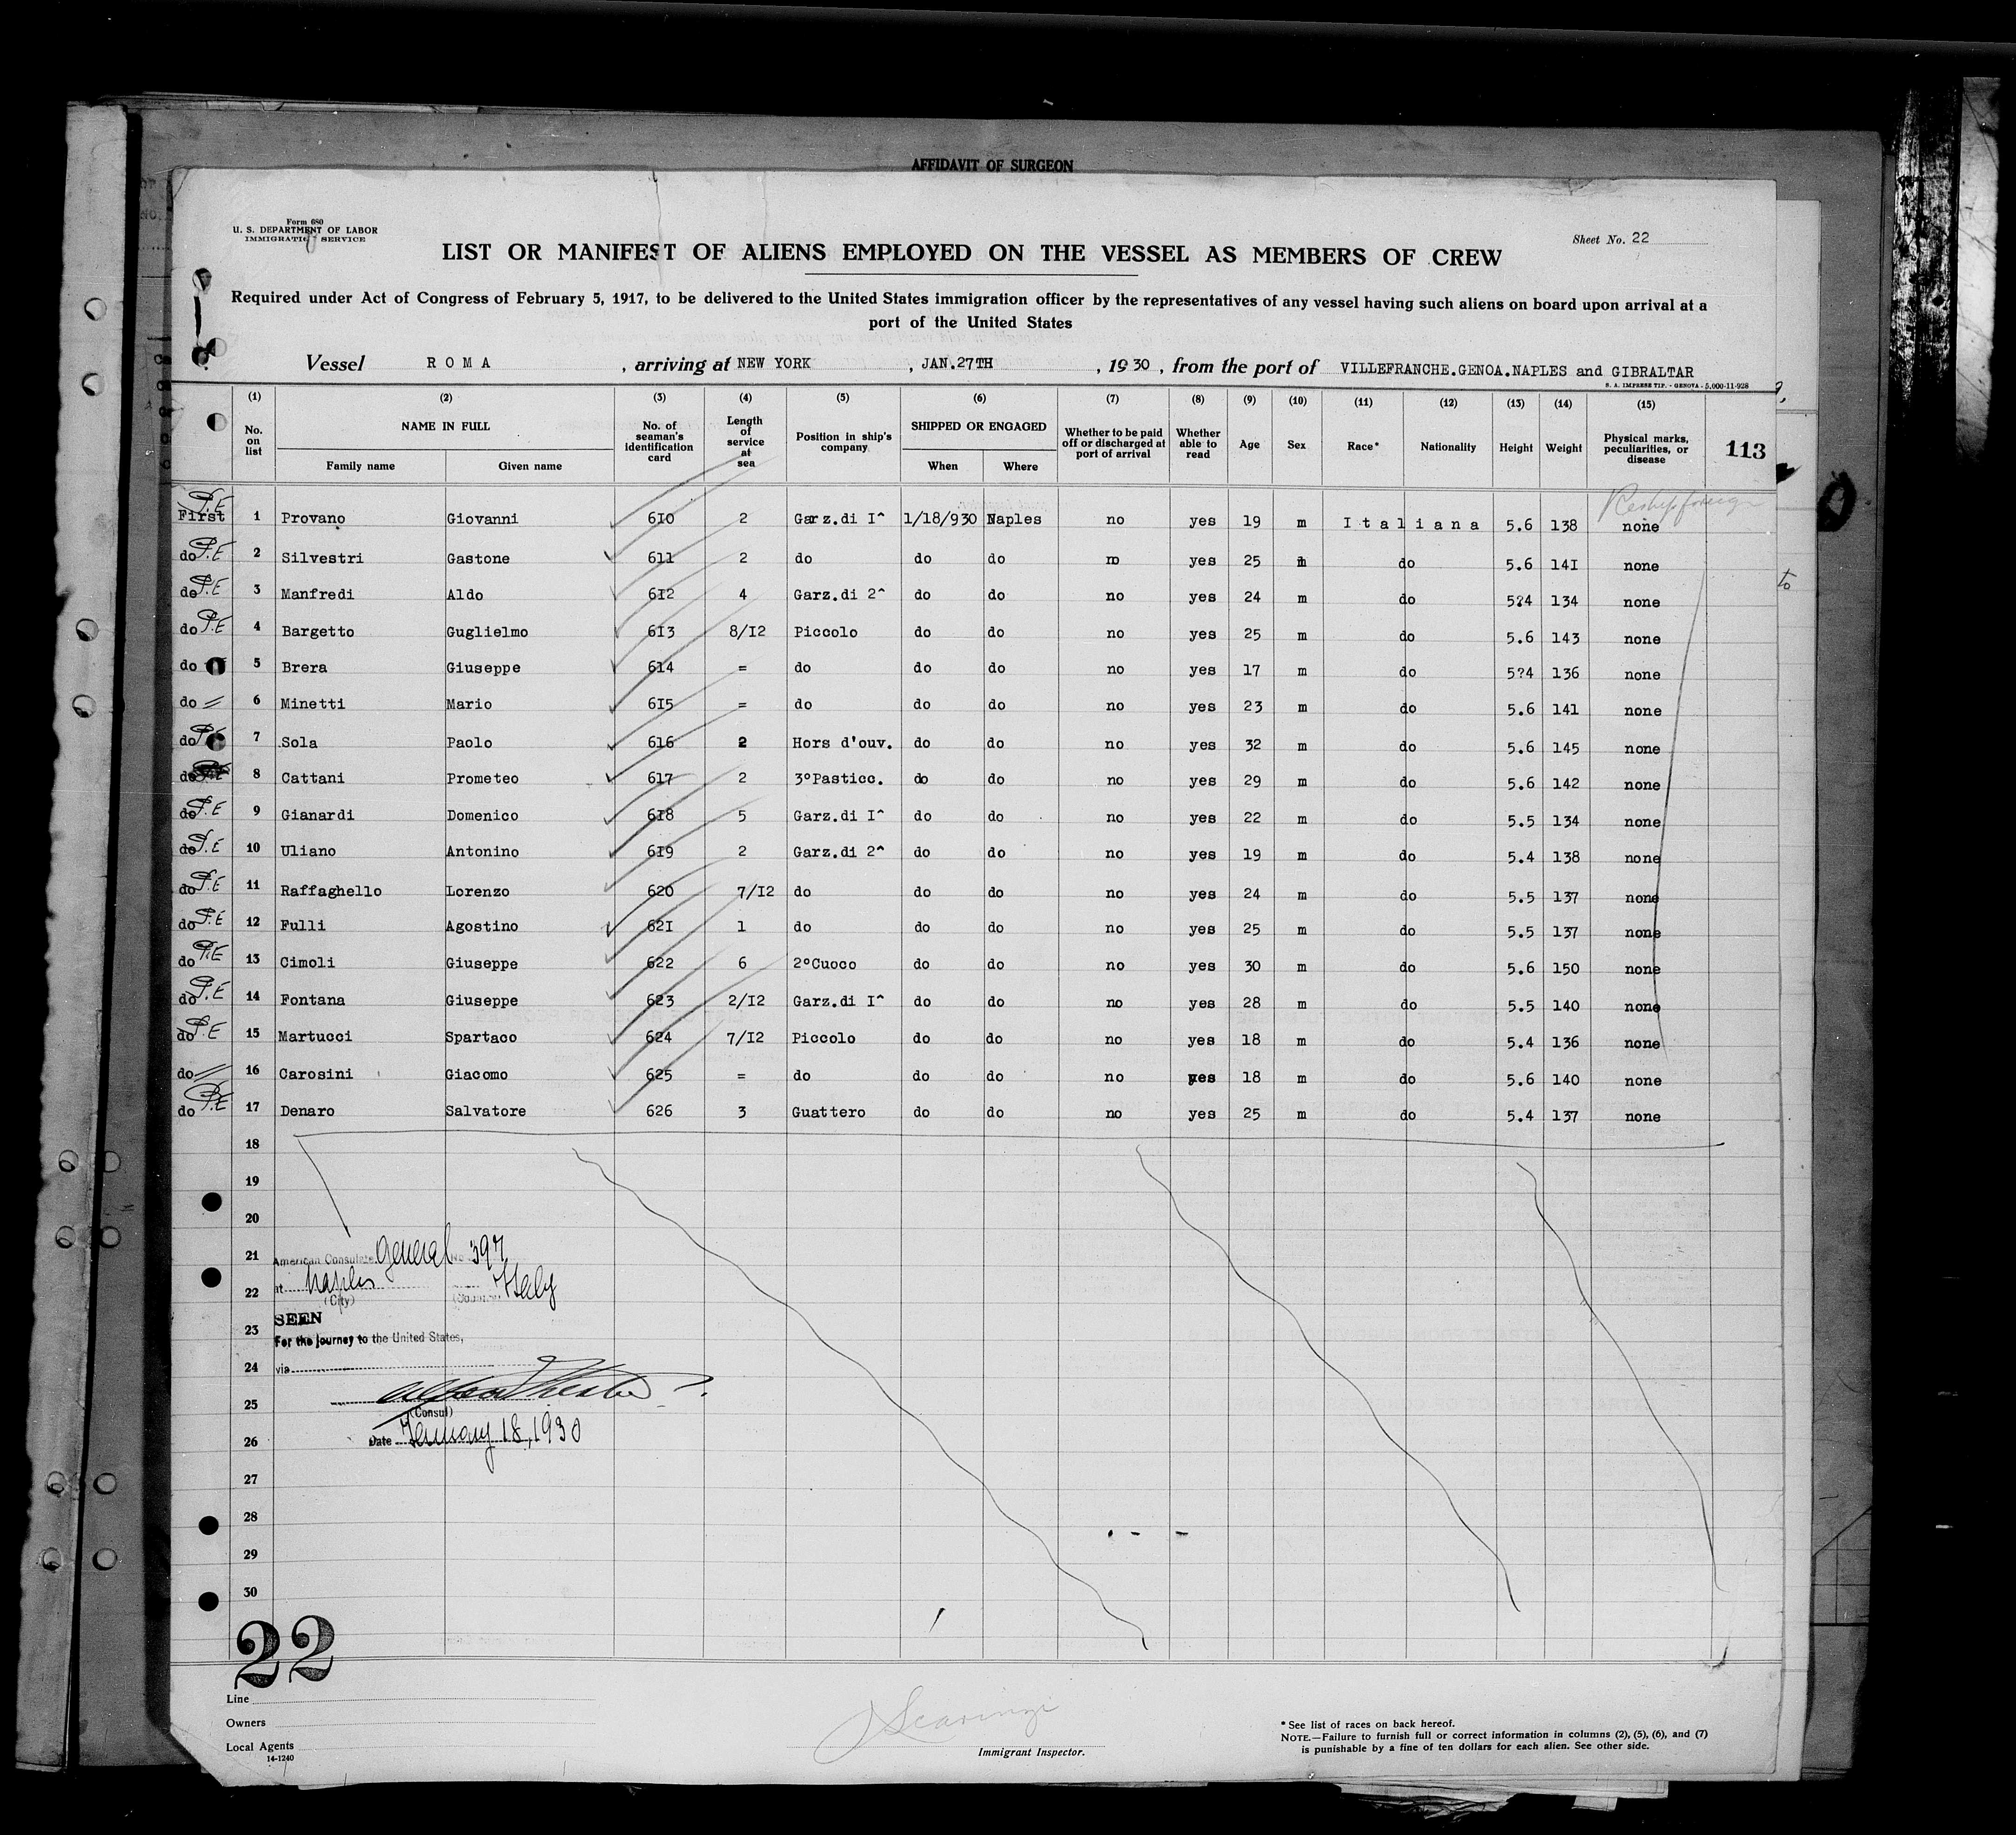 AFFIDAVIT OF SURGEON
Form 680
U. S. DEPARTMENT OF LABOR
IMMIGRATION SERVICE
Sheet No. 22
LIST OR MANIFEST OF ALIENS EMPLOYED ON THE VESSEL AS MEMBERS OF CREW
Required under Act of Congress of February 5, 1917, to be delivered to the United States immigration officer by the representatives of any vessel having such aliens on board upon arrival at a
port of the United States
Vessel R O M A , arriving at NEW YORK , JAN.27TH , 1930 , from the port of VILLEFRANCHE.GENOA.NAPLES and GIBRALTAR
S. A. IMPRESE TIP. - GENOVA - 5,000-11-928
(1) (2) (3) (4) (5) (6) (7) (8) (9) (10) (11) (12) (13) (14) (15)
No. on list NAME IN FULL Family name Given name No. of seaman's identification card Length of service at sea Position in ship's company SHIPPED OR ENGAGED When Where Whether to be paid off or discharged at port of arrival Whether able to read Age Sex Race* Nationality Height Weight Physical marks, peculiarities, or disease 113
P.E First 1 Provano Giovanni 610 2 Garz.di I^ 1/18/930 Naples no yes 19 m I t a l i a n a 5.6 138 none
do P.E 2 Silvestri Gastone 611 2 do do do no yes 25 m do 5.6 141 none
do P.E 3 Manfredi Aldo 612 4 Garz.di 2^ do do no yes 24 m do 5?4 134 none
do P.E 4 Bargetto Guglielmo 613 8/12 Piccolo do do no yes 25 m do 5.6 143 none
do 5 Brera Giuseppe 614 = do do do no yes 17 m do 5?4 136 none
do 6 Minetti Mario 615 = do do do no yes 23 m do 5.6 141 none
do P.E 7 Sola Paolo 616 2 Hors d'ouv. do do no yes 32 m do 5.6 145 none
do 8 Cattani Prometeo 617 2 3°Pasticc. do do no yes 29 m do 5.6 142 none
do P.E 9 Gianardi Domenico 618 5 Garz.di I^ do do no yes 22 m do 5.5 134 none
do P.E 10 Uliano Antonino 619 2 Garz.di 2^ do do no yes 19 m do 5.4 138 none
do P.E 11 Raffaghello Lorenzo 620 7/12 do do do no yes 24 m do 5.5 137 none
do P.E 12 Fulli Agostino 621 1 do do do no yes 25 m do 5.5 137 none
do P.E 13 Cimoli Giuseppe 622 6 2°Cuoco do do no yes 30 m do 5.6 150 none
do P.E 14 Fontana Giuseppe 623 2/12 Garz.di I^ do do no yes 28 m do 5.5 140 none
do P.E 15 Martucci Spartaco 624 7/12 Piccolo do do no yes 18 m do 5.4 136 none
do 16 Carosini Giacomo 625 = do do do no yes 18 m do 5.6 140 none
do P.E 17 Denaro Salvatore 626 3 Guattero do do no yes 25 m do 5.4 137 none
18
19
20
21 American Consulate General No 397
22 at Naples Italy
(City) (Country)
SEEN
23
For the journey to the United States,
24 via
25
(Consul)
26 Date January 18, 1930
27
28
29
30
22
Line
Owners
Local Agents
14-1240
Immigrant Inspector.
* See list of races on back hereof.
NOTE.—Failure to furnish full or correct information in columns (2), (5), (6), and (7)
is punishable by a fine of ten dollars for each alien. See other side.